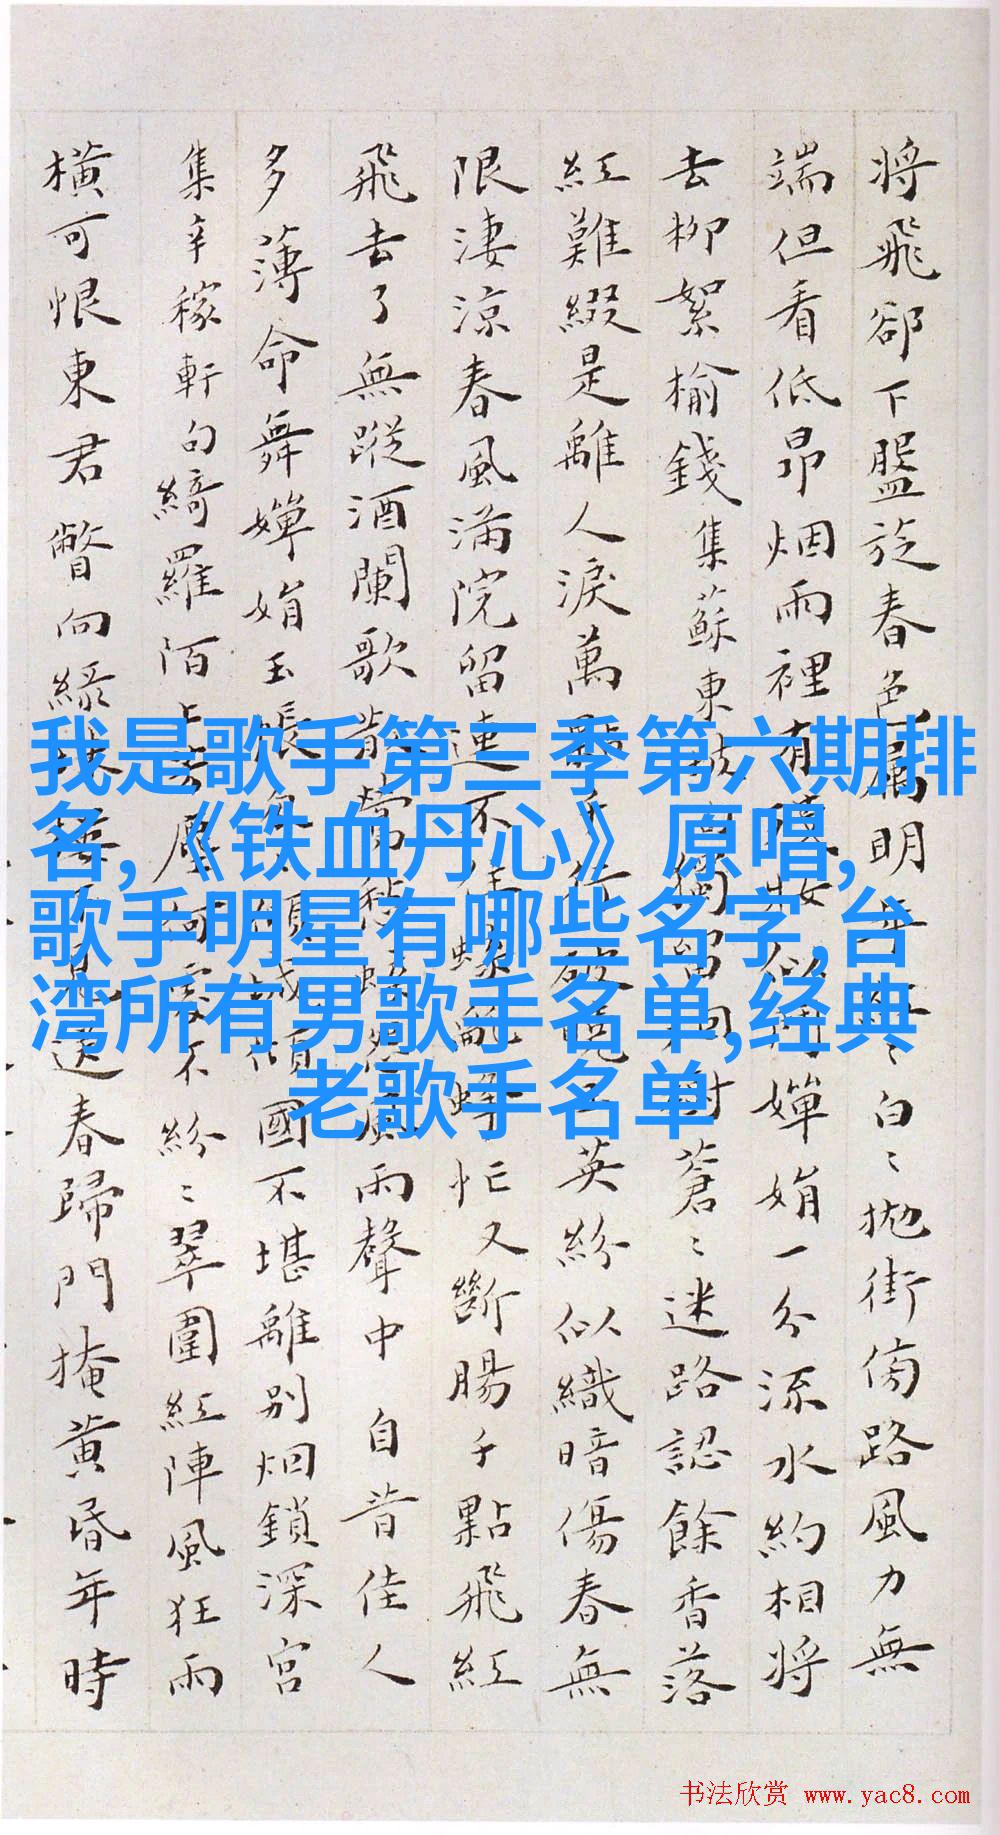 將飛卻下盤旋春色属明年〻白〻拋街傍路風力無
端但看低昂烟雨裡有嬋娟一分流水約相將
去柳絮榆錢集蘇東蒼〻迷路認餘香落
紅難綴是離人淚萬點英紛似織暗傷春無
限淒涼春風滿院留連不住蝶亂蜂忙又斷腸千點飛紅
飛去了無蹤酒闌歌散風雨聲中自昔佳人
多薄命舞嬋娟玉帳傾城傾國不堪離別烟鎖深宮
集辛稼軒句綺羅陌上塵何處不紛〻翠圍紅陣風狂雨
橫可恨東君瞥向緣珠送春歸門掩黃昏年時
我是歌手第三季第六期排
名,《铁血丹心》原唱,
歌手明星有哪些名字,台
湾所有男歌手名单,经典
老歌手名单
书法欣赏 www.yac8.com